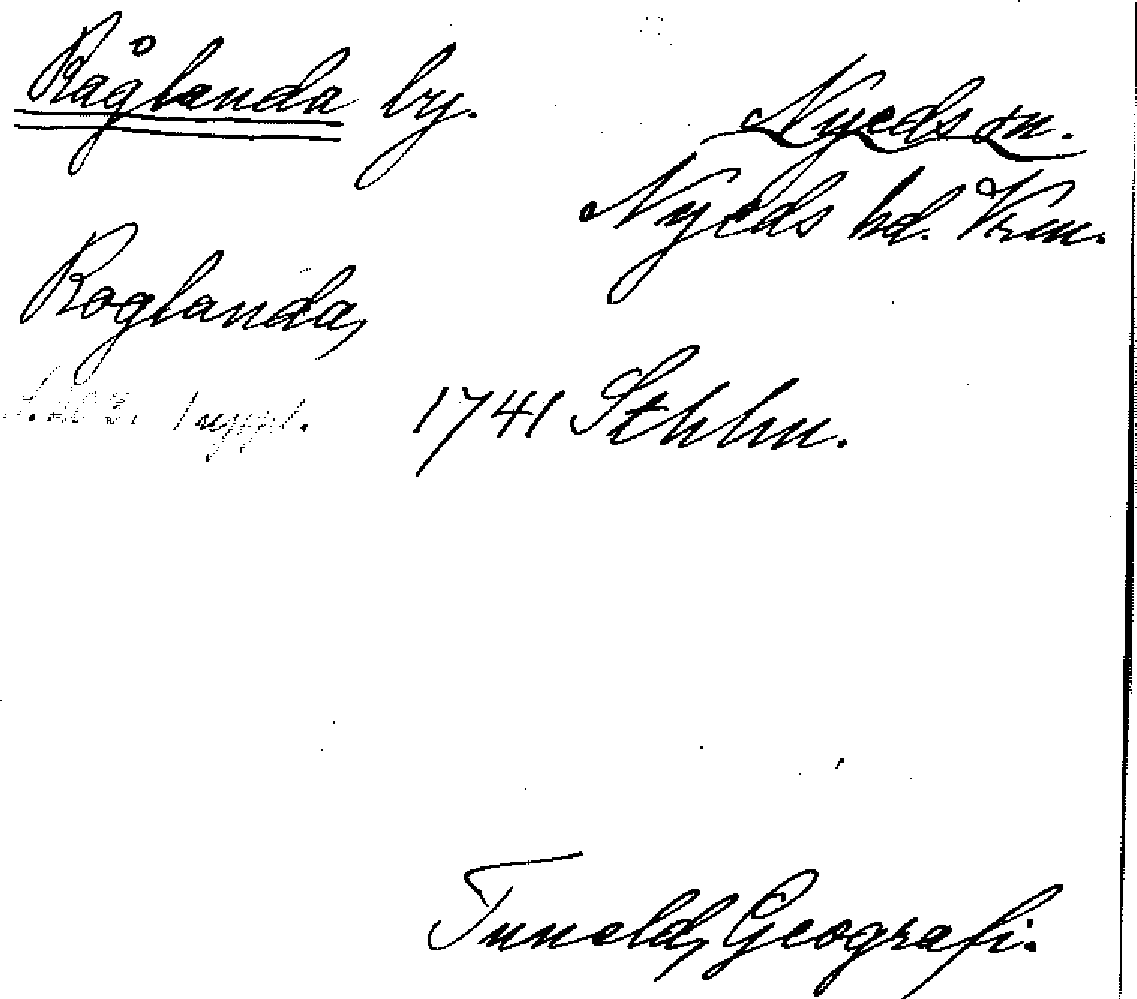 Råglanda by.
Nyeds sn.
Nyeds hd. Vrm.
Roglanda,
1741 Sthlm.
Tuneld, Geografi.